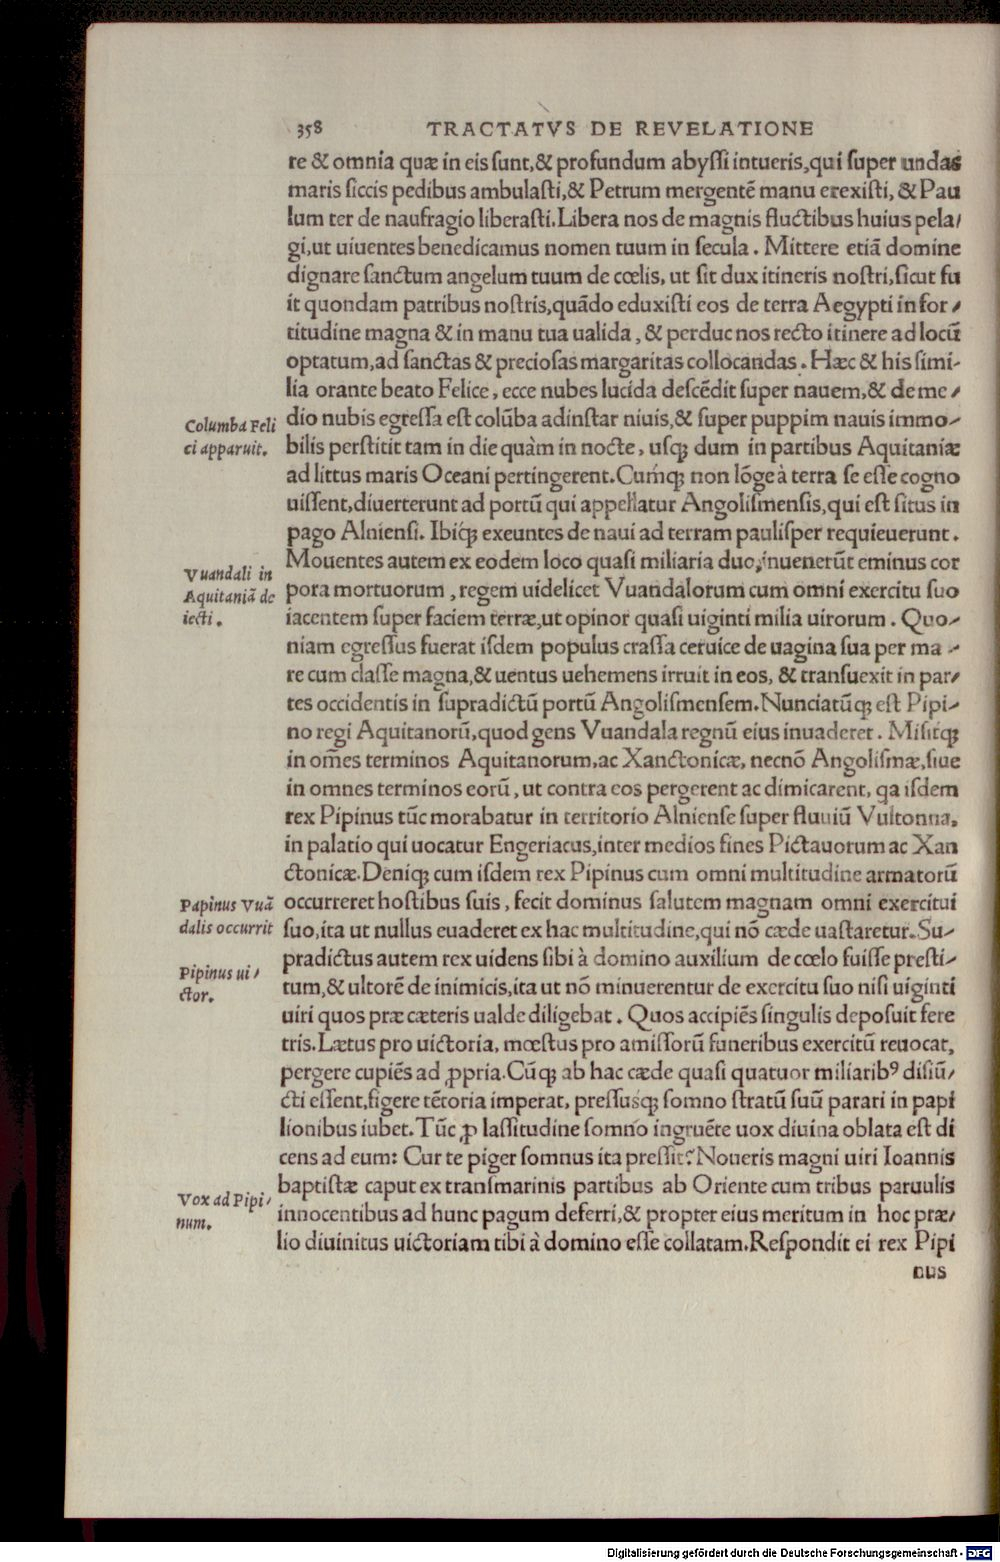 358 TRACTATVS DE REVELATIONE
re & omnia quæ in eis ſunt,& profundum abyſſi intueris,qui ſuper undas
maris ſiccis pedibus ambulaſti,& Petrum mergentē manu erexiſti, & Pau
lum ter de naufragio liberaſti.Libera nos de magnis fluctibus huius pela/
gi,ut uiuentes benedicamus nomen tuum in ſecula . Mittere etiā domine
dignare ſanctum angelum tuum de cœlis, ut ſit dux itineris noſtri,ſicut fu
it quondam patribus noſtris,quādo eduxiſti eos de terra Aegypti in for /
titudine magna & in manu tua ualida , & perduc nos recto itinere ad locū
optatum,ad ſanctas & precioſas margaritas collocandas . Hæc & his ſimi-
lia orante beato Felice , ecce nubes lucida deſcēdit ſuper nauem,& de me /
Columba Feli
ci apparuit.
dio nubis egreſſa eſt colūba adinſtar niuis,& ſuper puppim nauis immo-
bilis perſtitit tam in die quàm in nocte , uſqꝫ dum in partibus Aquitaniæ
ad littus maris Oceani pertingerent.Cumqꝫ non lōge à terra ſe eſſe cogno
uiſſent,diuerterunt ad portū qui appellatur Angoliſmenſis,qui eſt ſitus in
pago Alnienſi. Ibiqꝫ exeuntes de naui ad terram pauliſper requieuerunt .
Mouentes autem ex eodem loco quaſi miliaria duo,inuenerūt eminus cor
Vuandali in
Aquitaniā de
iecti .
pora mortuorum , regem uidelicet Vuandalorum cum omni exercitu ſuo
iacentem ſuper faciem terræ,ut opinor quaſi uiginti milia uirorum . Quo-
niam egreſſus fuerat iſdem populus craſſa ceruice de uagina ſua per ma -
re cum claſſe magna,& uentus uehemens irruit in eos, & tranſuexit in par/
tes occidentis in ſupradictū portū Angoliſmenſem.Nunciatūqꝫ eſt Pipi-
no regi Aquitanorū,quod gens Vuandala regnū eius inuaderet . Miſitqꝫ
in om̄es terminos Aquitanorum,ac Xanctonicæ, necnō Angoliſmæ,ſiue
in omnes terminos eorū , ut contra eos pergerent ac dimicarent, qa iſdem
rex Pipinus tūc morabatur in territorio Alnienſe ſuper fluuiū Vultonna,
in palatio qui uocatur Engeriacus,inter medios fines Pictauorum ac Xan
ctonicæ.Deniqꝫ cum iſdem rex Pipinus cum omni multitudine armatorū
Papinus Vuā
dalis occurrit
occurreret hoſtibus ſuis , fecit dominus ſalutem magnam omni exercitui
ſuo,ita ut nullus euaderet ex hac multitudine,qui nō cæde uaſtaretur.Su-
pradictus autem rex uidens ſibi à domino auxilium de cœlo fuiſſe preſti-
Pipinus ui /
ctor.
tum,& ultorē de inimicis,ita ut nō minuerentur de exercitu ſuo niſi uiginti
uiri quos præ cæteris ualde diligebat . Quos accipiēs ſingulis depoſuit fere
tris.Lætus pro uictoria, mœſtus pro amiſſorū funeribus exercitū reuocat,
pergere cupiēs ad ꝓpria.Cūqꝫ ab hac cæde quaſi quatuor miliarib⁹ diſiū/
cti eſſent,figere tētoria imperat, preſſusqꝫ ſomno ſtratū ſuū parari in papi
lionibus iubet.Tūc ꝓ laſſitudine ſomno ingruēte uox diuina oblata eſt di
cens ad eum: Cur te piger ſomnus ita preſſit? Noueris magni uiri Ioannis
Vox ad Pipi/
num.
baptiſtæ caput ex tranſmarinis partibus ab Oriente cum tribus paruulis
innocentibus ad hunc pagum deferri,& propter eius meritum in hoc præ/
lio diuinitus uictoriam tibi à domino eſſe collatam.Reſpondit ei rex Pipi
nus
Digitalisierung gefördert durch die Deutsche Forschungsgemeinschaft - DFG